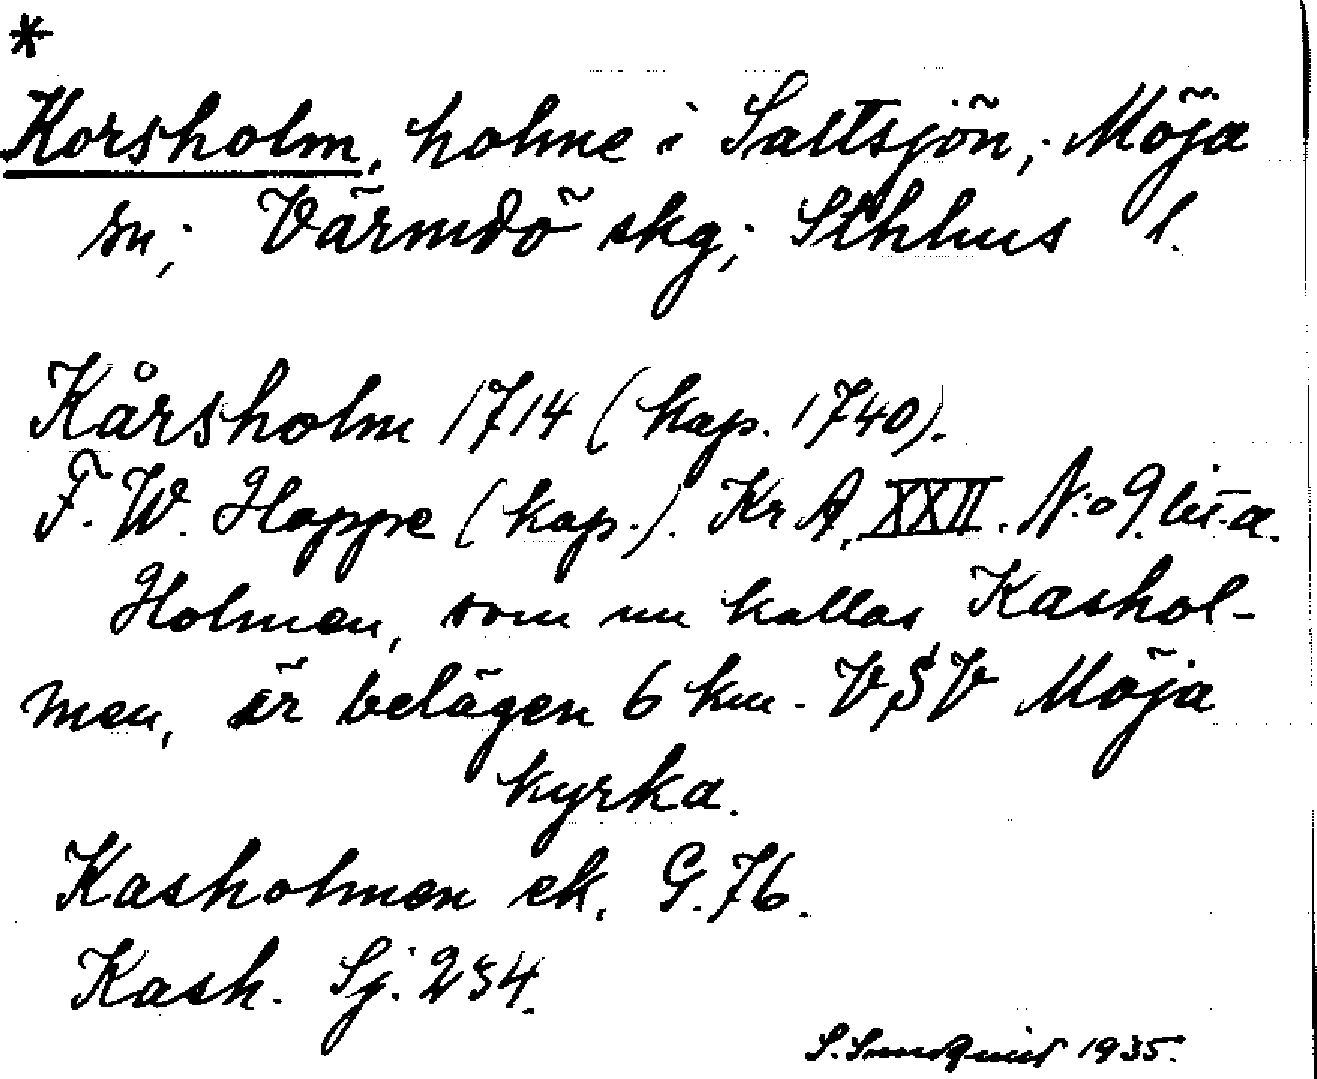 *
Korsholm, holme i Saltsjön; Möja
sn; Värmdö skg; Sthlms l.
Kårsholm 1714 (kap. 1740).
F. W. Hoppe (kap.). Kr A. XXII. N:o 9. lit. a.
Holmen, som nu kallas Kashol-
men, är belägen 6 km. VSV Möja
kyrka.
Kasholmen ek. G. 76.
Kash. Sj. 234.
S. Sundquist 1935.